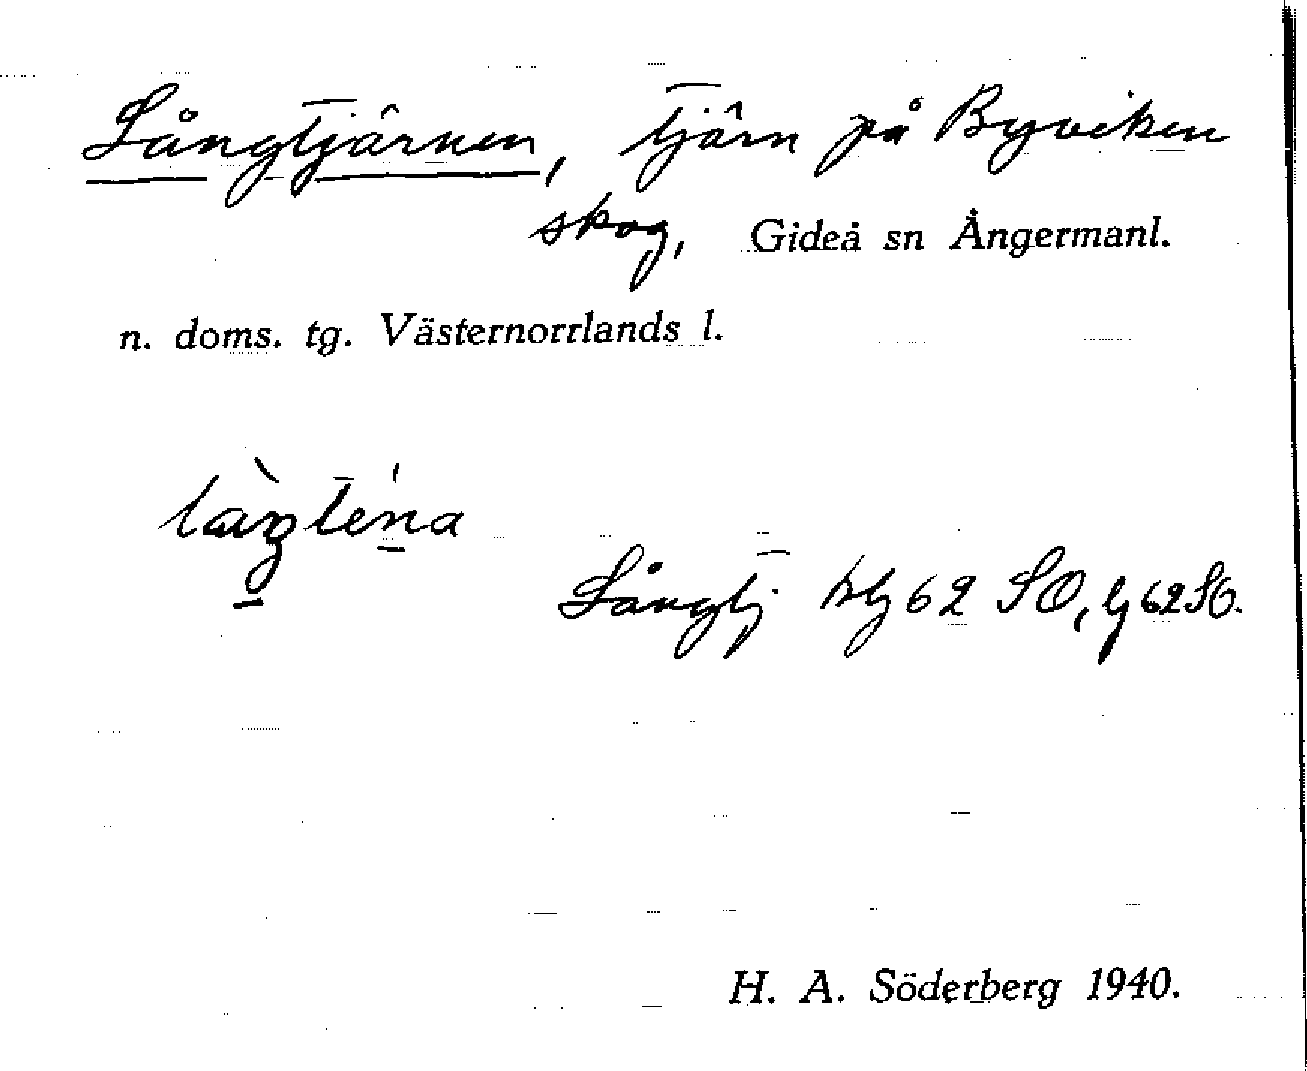 Långtjärnen, tjärn på Byviken
skog, Gideå sn Ångermanl.
n. doms. tg. Västernorrlands l.
Långtj
62 SO, 62 SO.
H. A. Söderberg 1940.